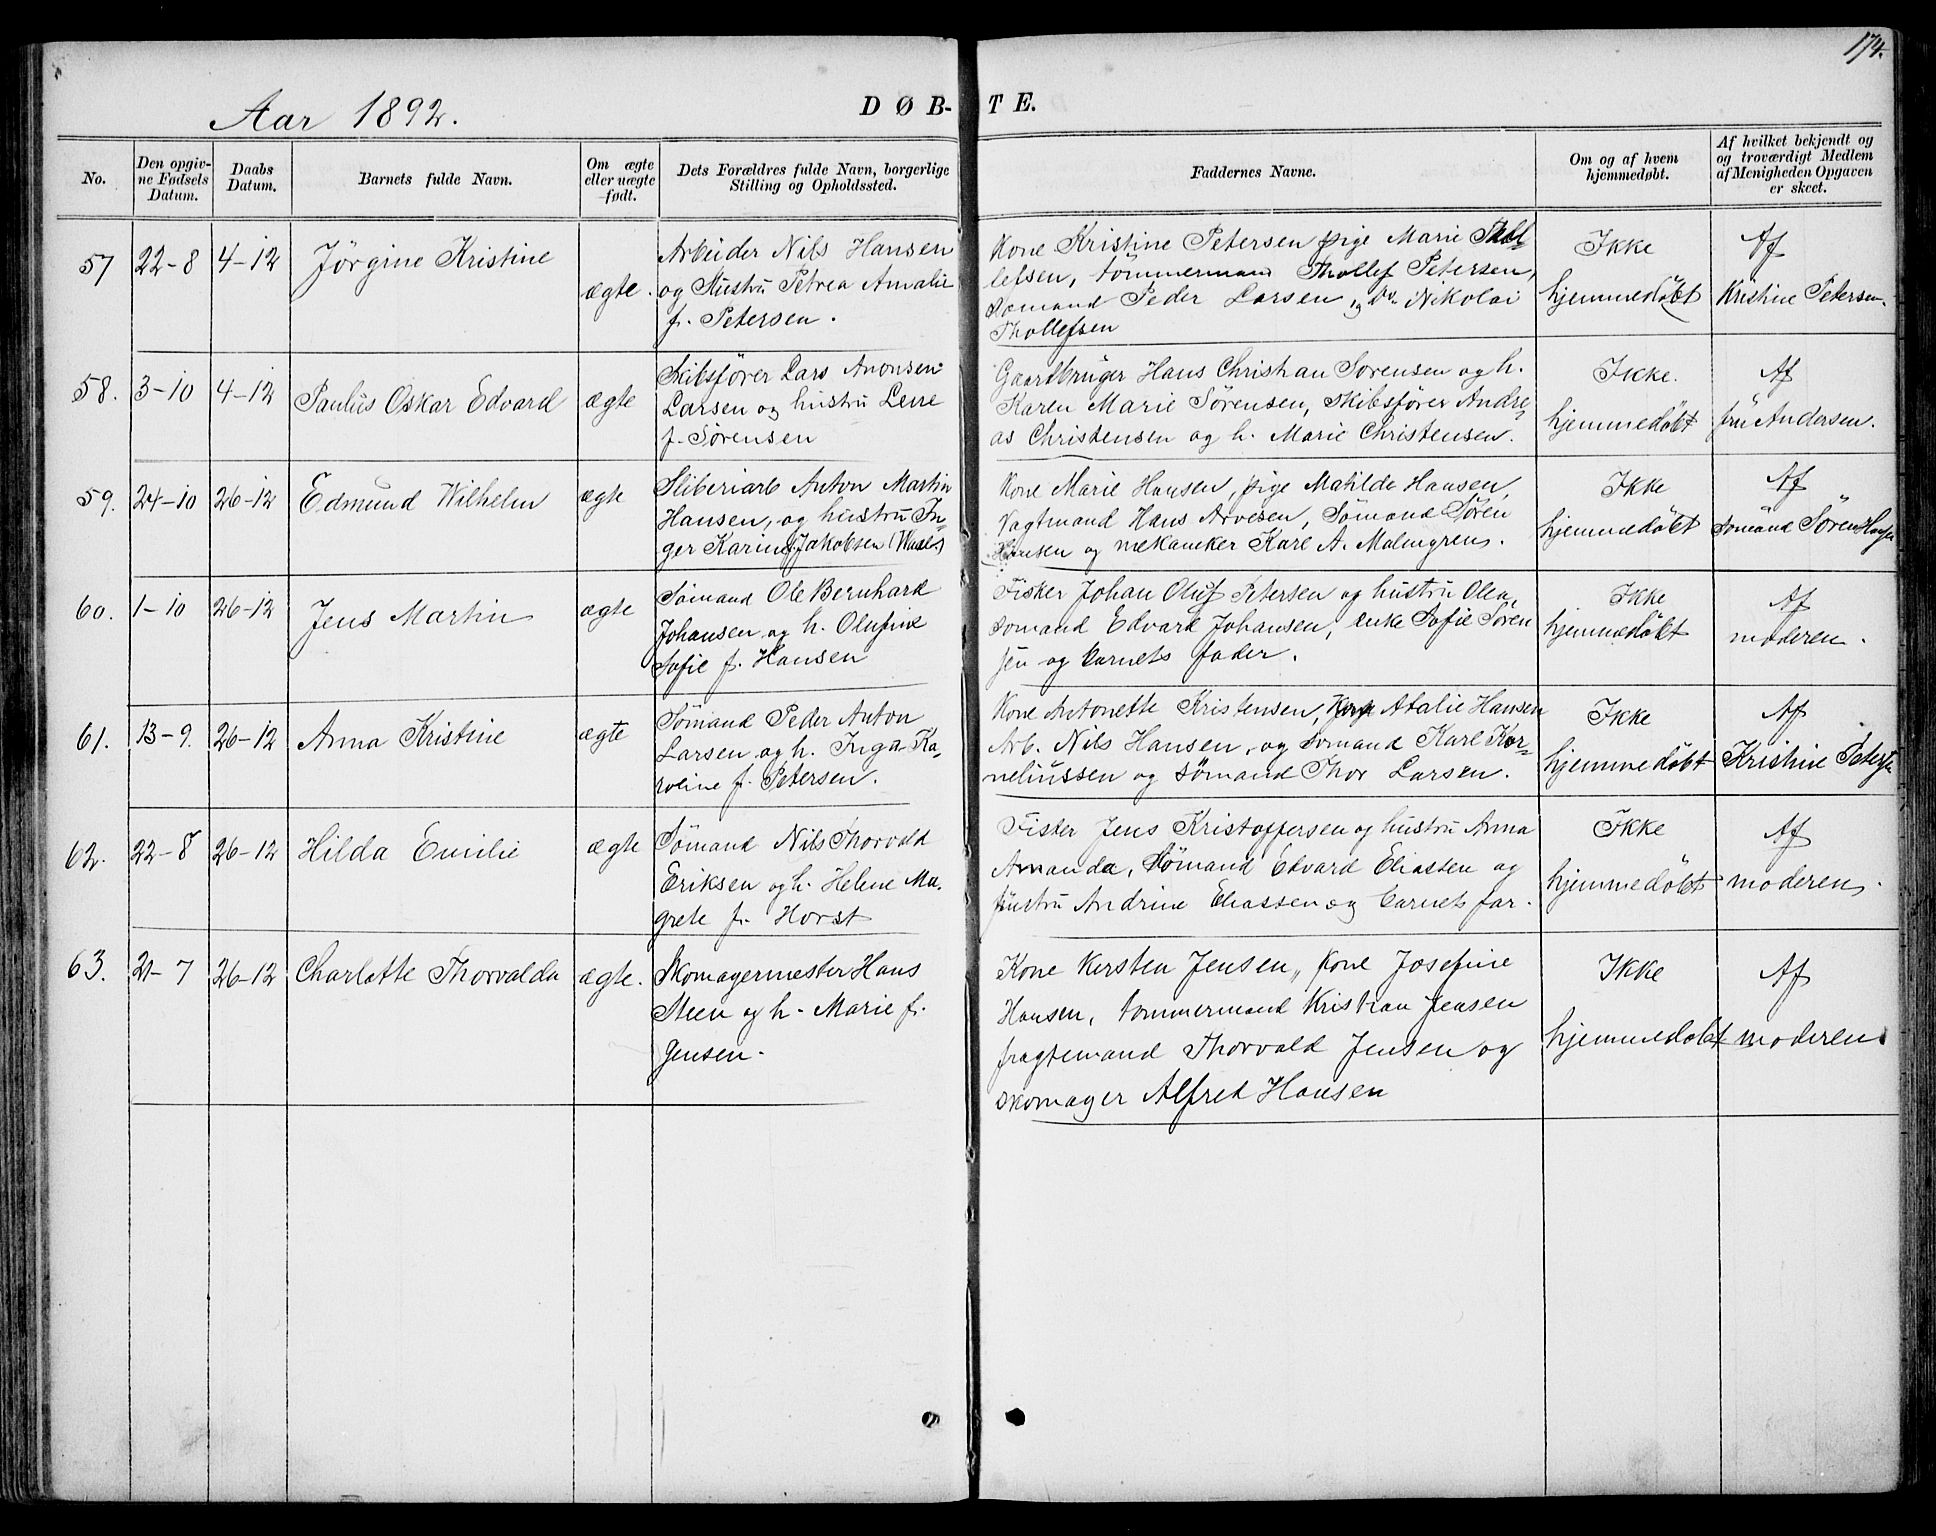 174.
Aar 1892.
DØB-TE.
No.
Den opgiv-
ne Fødsels
Datum.
Daabs
Datum.
Barnets fulde Navn.
Om ægte
eller uægte
født.
Dets Forældres fulde Navn, borgerlige
Stilling og Opholdssted.
Faddernes Navne.
Om og af hvem
hjemmedøbt.
Af hvilket bekjendt og
og troværdigt Medlem
af Menigheden Opgaven
er skeet.
57 22-8 4-12 Jörgine Kristine ægte.
Arbeider Nils Hansen
og Hustru Petrea Amalie
f. Petersen.
Kone Kristine Petersen pige Marie Thol-
lefsen, tömmermand Thollef Petersen,
somand Peder Larsen, Do. Nikolai
Thollefsen
Ikke
hjemmedöbt
Af
Kristine Petersen.
58. 3-10 4-12 Paulus Oskar Edvard ægte
Skibsförer Lars Anonsen
Larsen og hustru Lene
f. Sörensen
Gaardbruger Hans Christian Sorensen og h.
Karen Marie Sörensen, skibsförer Andre-
as Christensen og h. Marie Christensen.
Ikke.
hjemmedöbt
Af
fru Andersen.
59. 24-10 26-12 Edmund Wilhelm ægte
Sliberiarb Anton Martin
Hansen, og hustru In-
ger Karine Jakobsen
Kone Marie Hansen, pige Matilde Hansen,
Vagtmand Hans Arvesen, Sömand Sören
Hansen og mekaniker Karl A. Malmgrens.
Ikke
hjemmedöbt
Af
somand Sören Hansen
60. 1-10 26-12 Jens Martin ægte
Sömand Ole Bernhard
Johansen og h. Olufine
Sofie f. Hansen
Fisker Johan Oluf Petersen og hustru Olea,
somand Edvard Johansen, enke Sofie Sören
sen og barnets fader.
Ikke
hjemmedöbt
Af
moderen.
61. 13-9. 26-12 Anna Kristine ægte
Sömand Peder Anton
Larsen og h. Inga Ka-
roline f. Petersen.
Kone Antonette Kristensen, Atalie Hansen
Arb. Nils Hansen, og somand Karl Kor-
neliussen og sömand Thor Larsen.
Ikke
hjemmedöbt
Af
Kristine Petersen
62. 22-8 26-12 Hilda Emilie ægte
Sömand Nils Thorvald
Eriksen og h. Helene Ma-
grete f. Horst
Fisker Jens Kristoffersen og hustru Anna
Amanda, Sömand Edvard Eliassen og
hustru Andrine Eliassen og barnets far.
Ikke
hjemmedöbt
Af
moderen.
63. 21-7 26-12 Charlotte Thorvalda ægte.
Skomagermester Hans
Steen og h. Marie f.
Jensen.
Kone Kersten Jensen, kone Josefine
Hansen, tommermand Kristian Jensen
fragtemand Thorvald Jensen og
skomager Alfred Hansen
Ikke
hjemmedöbt
Af
moderen.